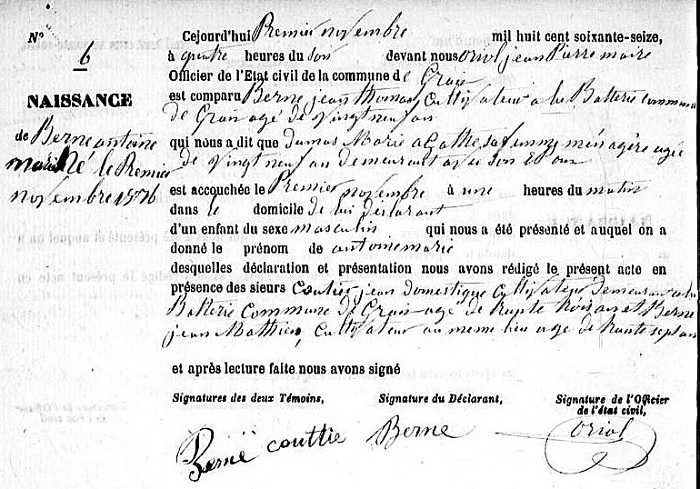 N°
6
NAISSANCE
de Berne antoine
marie né le Premier
novembre 1876
Cejourd'hui Premier novembre mil huit cent soixante-seize,
à quatre heures du soir devant nous oriol jean Pierre maire
Officier de l'Etat civil de la commune de Graix
est comparu Berne jean thomas Cultivateur a la Batterie commune
de Graix agé de vingt neuf an
qui nous a dit que dumas Marie agathe, sa femme ménagère agée
de vingt neuf an demeurant avec son Epoux
est accouchée le Premier novembre à une heures du matin
dans le domicile de lui déclarant
d'un enfant du sexe masculin qui nous a été présenté et auquel on a
donné le prénom de antoine marie
desquelles déclaration et présentation nous avons rédigé le présent acte en
présence des sieurs jean domestique Cultivateur demeurant
Batterie Commune de Graix agé de trente trois an et Berne
jean Mathieu, Cultivateur au meme lieu age de trente sept an
et après lecture faite nous avons signé
Signatures des deux Témoins, Signature du Déclarant, Signature de l'Officier
de l'état civil,
Berne couttie Berne Oriol